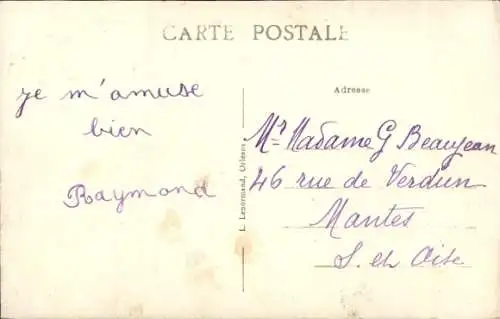 CARTE POSTALE
je m'amuse
bien
Raymond
L. Lenormand, Orléans
Adresse
Mr Madame G Beaujean
46 rue de Verdun
Mantes
S. et Oise